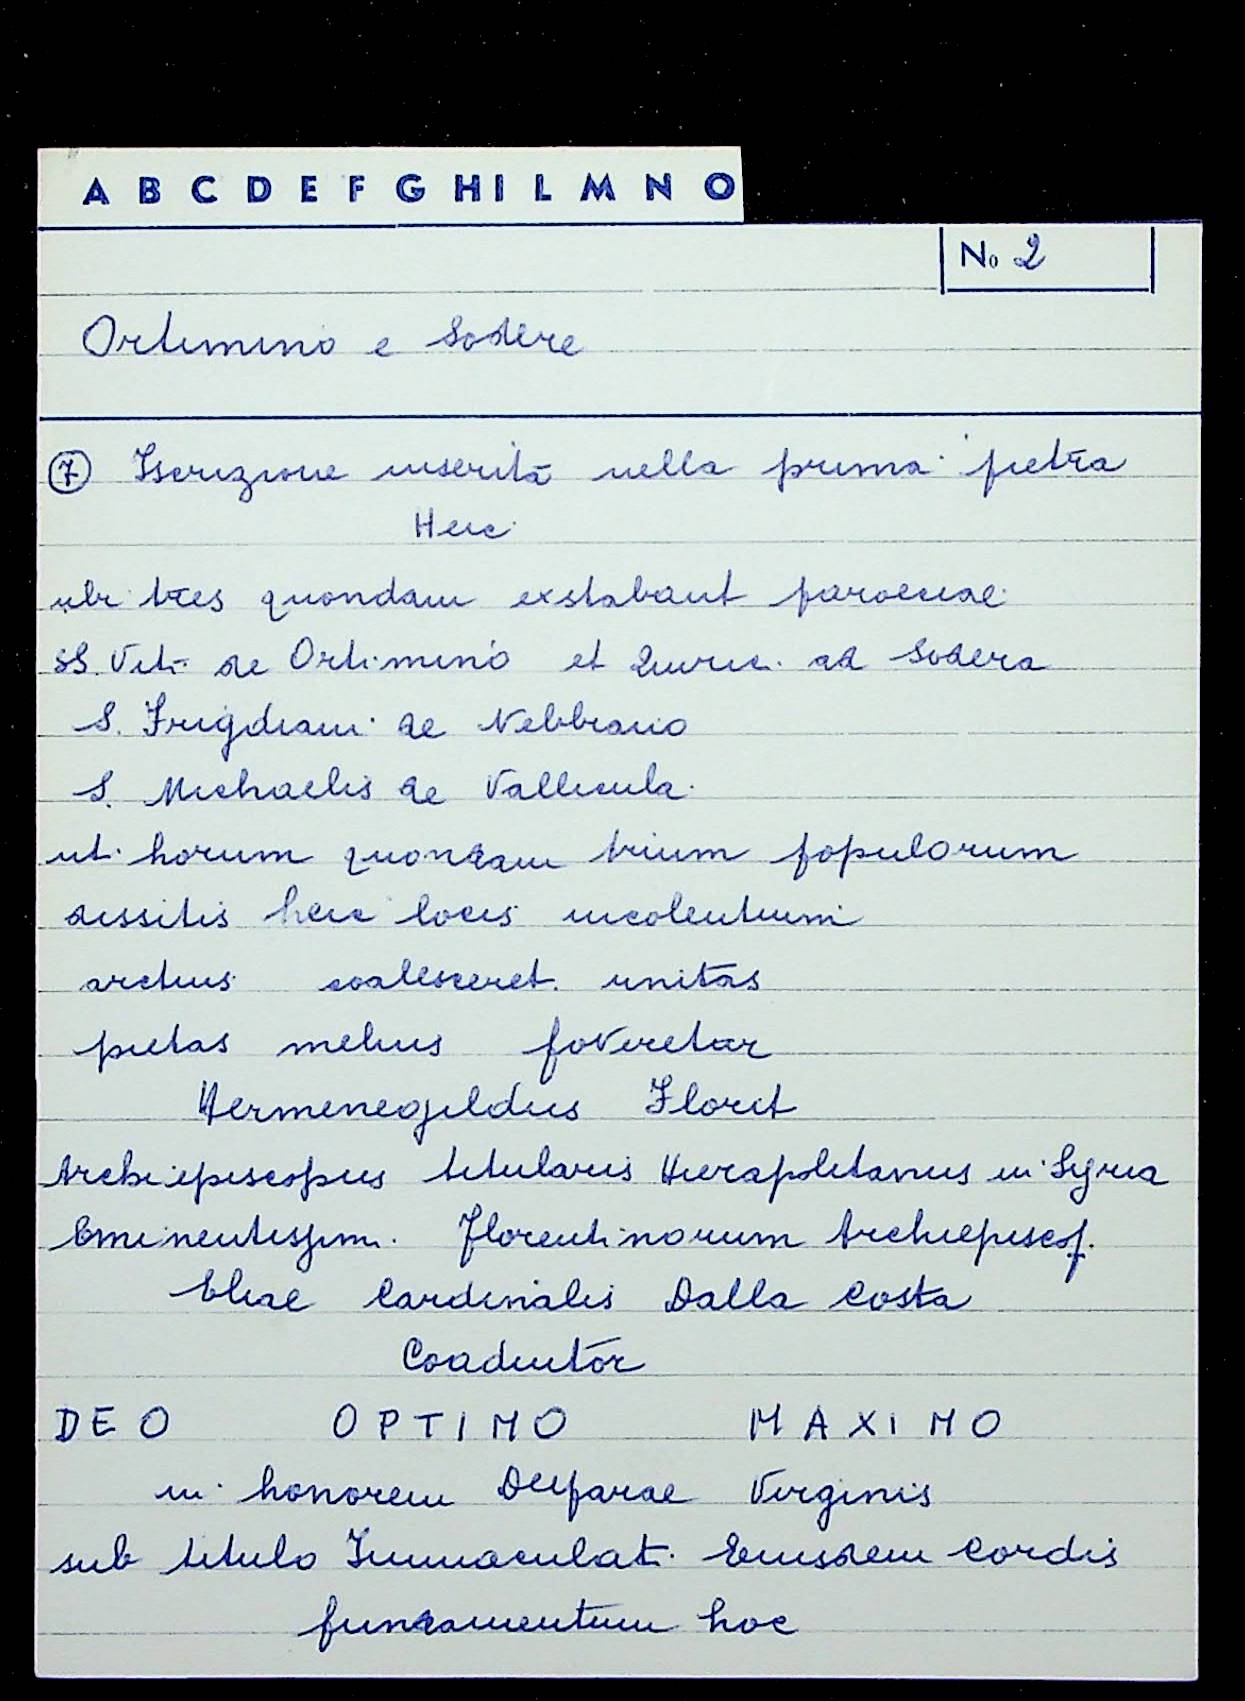 A B C D E F G H I L M N O
No 2
Ortimino e Sodere
7 Iscrizione inserita nella prima pietra
Heic
ubi tres quondam exstabant paroeciae
SS. Viti de Ortimino et Quiric. ad Sodera
S. Frigdiani de Nebbiano
S. Michaelis de Vallicula
ut horum quondam trium populorum
dissitis heic locis incolentium
arctius coalesceret unitas
pietas melius foveretur
Hermenegildus Florit
Archiepiscopus titularis Hierapolitanus in Syria
Eminentissimi Florentinorum Archiepiscop.
Eliae Cardinalis Dalla Costa
Coadiutor
DEO OPTIMO MAXIMO
in honorem Deiparae Virginis
sub titulo Immaculati Eiusdem Cordis
fundamentum hoc